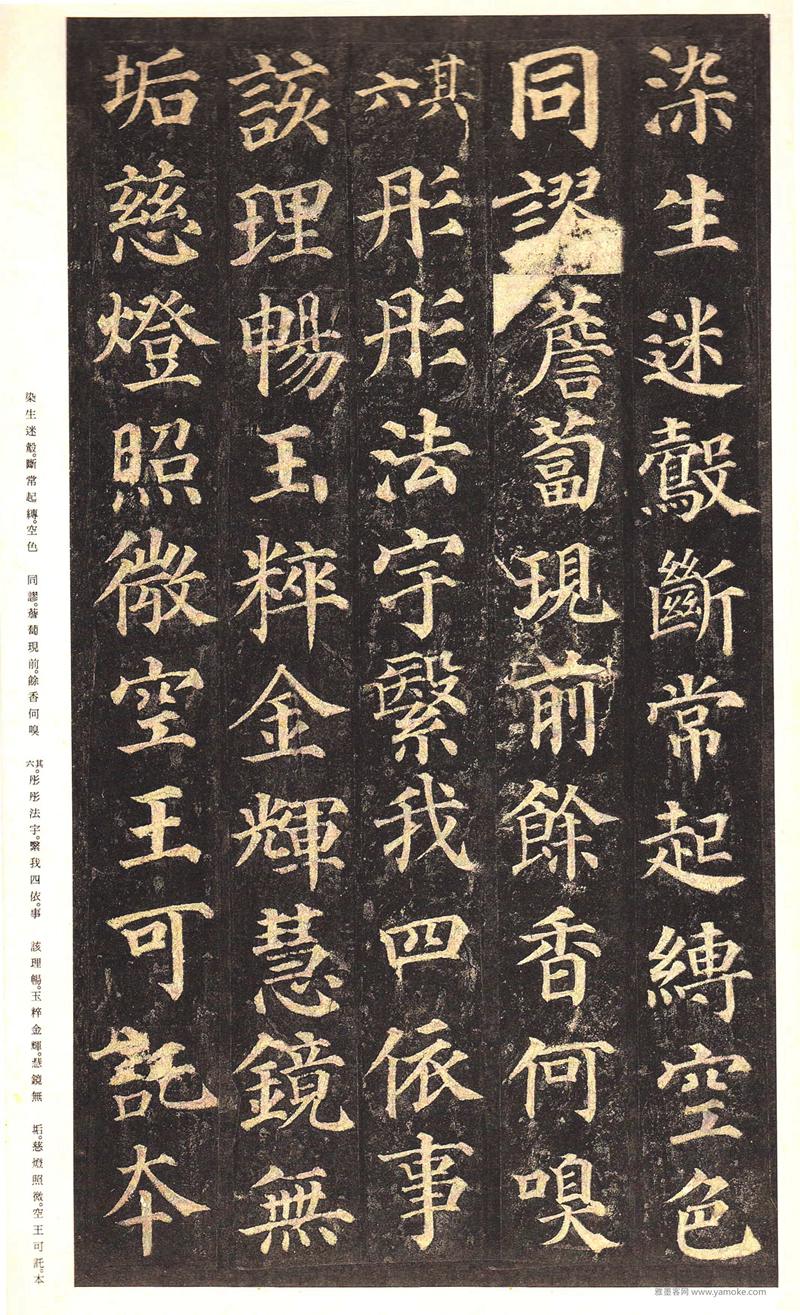 染生迷㲉斷常起縛空色
同謬薝蔔現前餘香何嗅
其六彤彤法宇繄我四依事
該理暢玉粹金輝慧鏡無
垢慈燈照微空王可託本
染生迷㲉。斷常起縛。空色 同謬。薝蔔現前。餘香何嗅 其六。彤彤法宇。繄我四依。事 該理暢。玉粹金輝。慧鏡無 垢。慈燈照微。空王可託。本
雅墨客网 www.yamoke.com